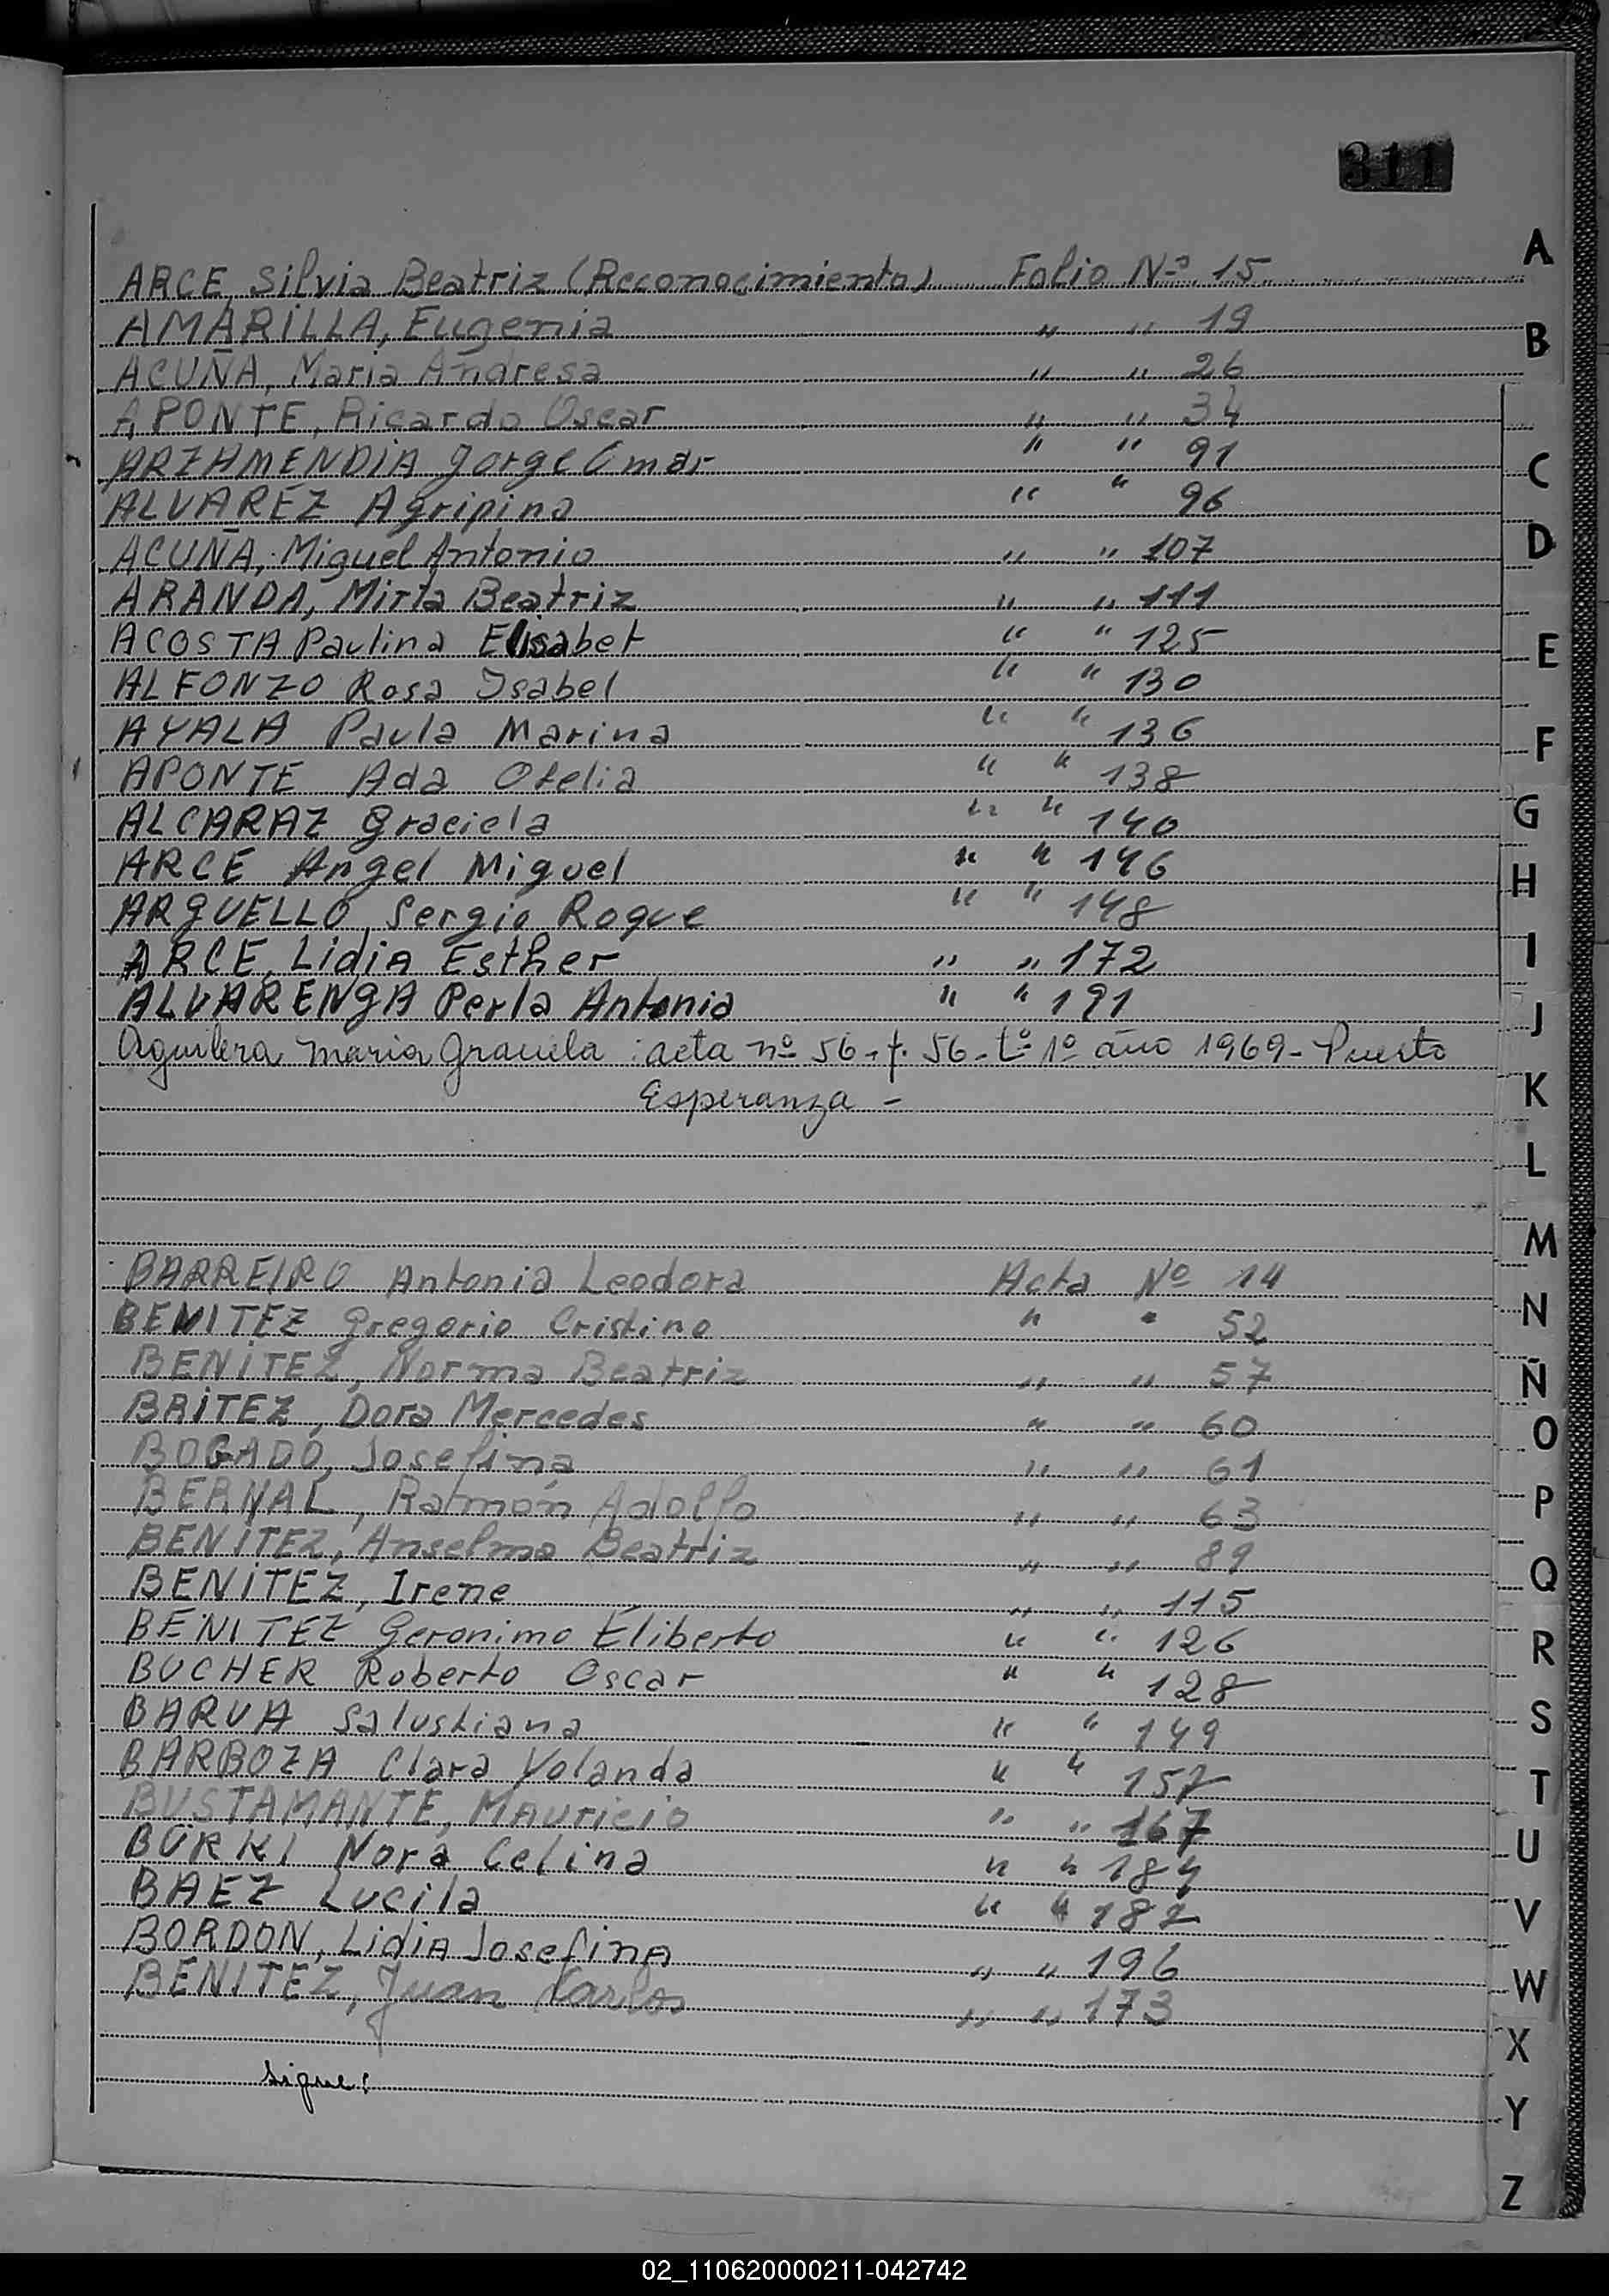 311
ARCE, Silvia Beatriz (Reconocimiento) Folio Nº 15
AMARILLA, Eugenia " " 19
ACUÑA, Maria Andresa " " 26
APONTE, Ricardo Oscar " " 34
ARZAMENDIA Jorge Omar " " 91
ALVAREZ Agripina " " 96
ACUÑA, Miguel Antonio " " 107
ARANDA, Mirta Beatriz " " 111
ACOSTA Paulina Elisabet " " 125
ALFONZO Rosa Isabel " " 130
AYALA Paula Marina " " 136
APONTE Ada Otelia " " 138
ALCARAZ Graciela " " 140
ARCE Angel Miguel " " 146
ARGUELLO, Sergio Roque " " 148
ARCE, Lidia Esther " " 172
ALVARENGA Perla Antonia " " 191
Aguilera Maria Graciela : acta nº 56 - f. 56 - tº 1º año 1969 - Puerto
Esperanza -
BARREIRO Antonia Leodora Acta Nº 14
BENITEZ Gregorio Cristino " " 52
BENITEZ, Norma Beatriz " " 57
BRITEZ, Dora Mercedes " " 60
BOGADO, Josefina " " 61
BERNAL, Ramón Adolfo " " 63
BENITEZ, Anselma Beatriz " " 89
BENITEZ, Irene " " 115
BENITEZ Geronimo Eliberto " " 126
BUCHER Roberto Oscar " " 128
BARUA Salustiana " " 149
BARBOZA Clara Yolanda " " 157
BUSTAMANTE, Mauricio " " 167
BÜRKI Nora Celina " " 184
BAEZ Lucila " "
BORDON, Lidia Josefina " " 196
BENITEZ, Juan Karlos " " 173
sigue:
A
B
C
D
E
F
G
H
I
J
K
L
M
N
Ñ
O
P
Q
R
S
T
U
V
W
X
Y
Z
02_110620000211-042742